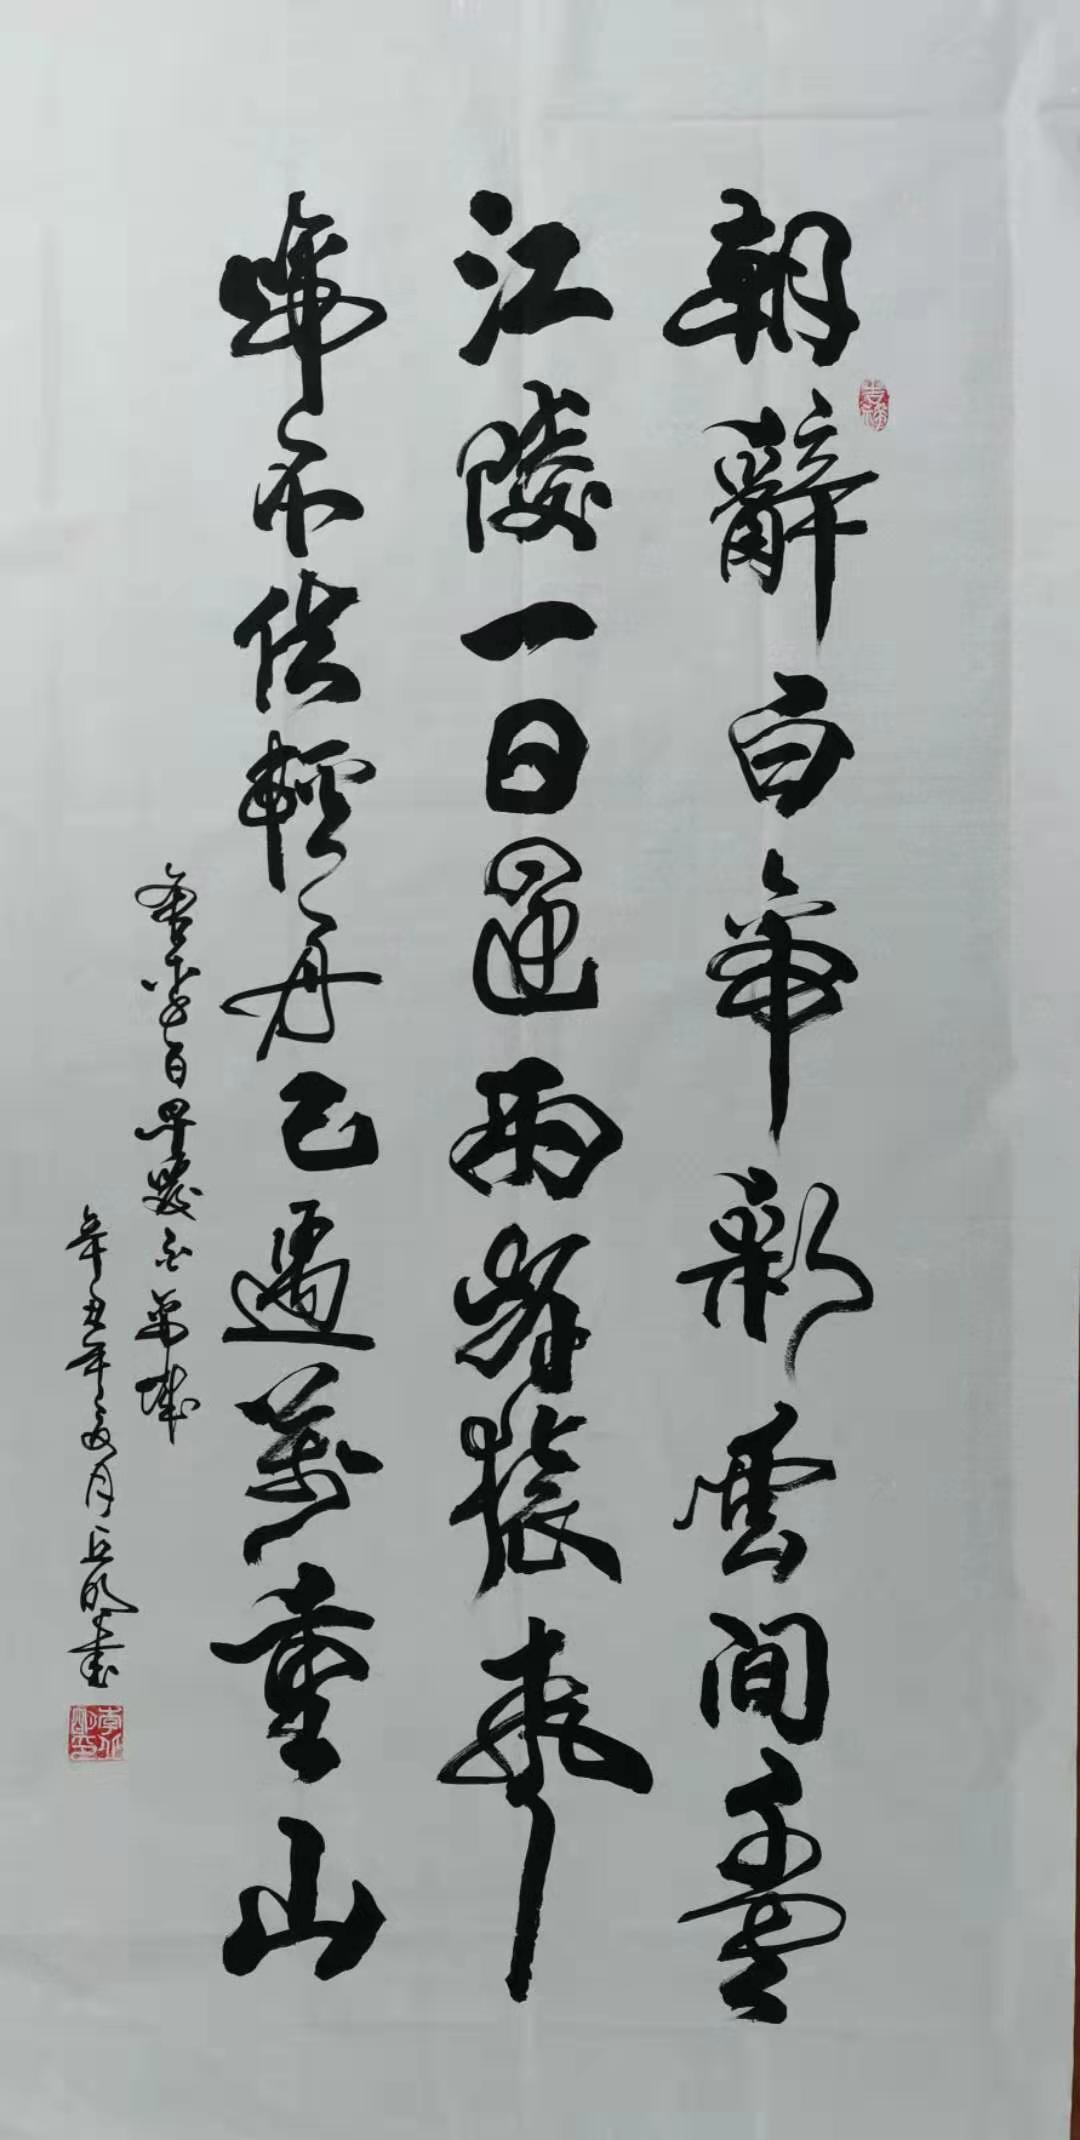 朝辭白帝彩雲間千里
江陵一日還兩岸猿聲
啼不住輕舟已過萬重山
唐李白早發白帝城
辛丑年夏月